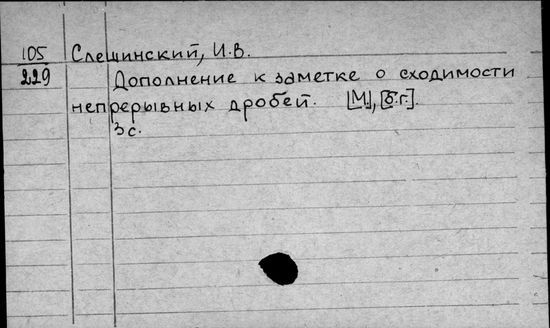 105 Слешинский, И.В.
229 Дополнение к заметке о сходимости
непрерывных дробей. [М], [б.г.].
3с.